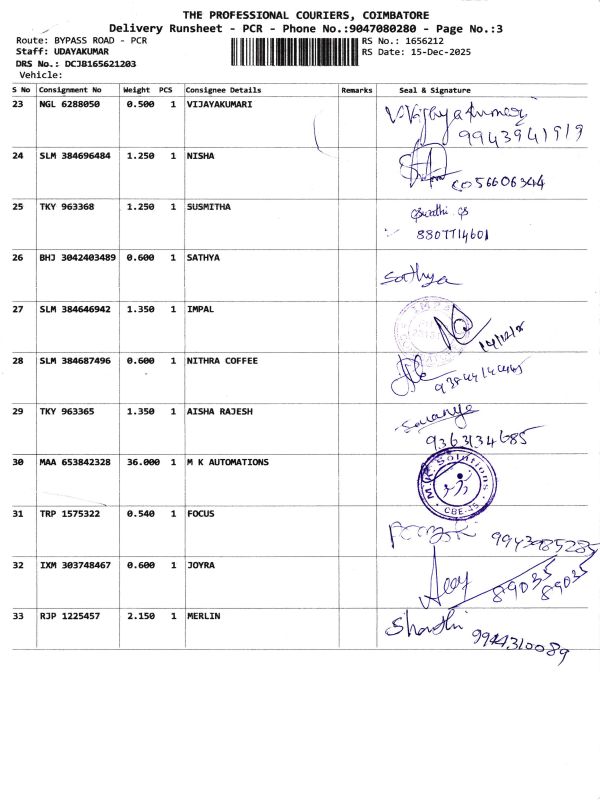 THE PROFESSIONAL COURIERS, COIMBATORE
Delivery Runsheet - PCR - Phone No.:9047080280 - Page No.:3
Route: BYPASS ROAD - PCR
RS No.: 1656212
Staff: UDAYAKUMAR
RS Date: 15-Dec-2025
DRS No.: DCJB165621203
Vehicle:
S No Consignment No Weight PCS Consignee Details Remarks Seal & Signature
23 NGL 6288050 0.500 1 VIJAYAKUMARI
9943941919
24 SLM 384696484 1.250 1 NISHA
25 TKY 963368 1.250 1 SUSMITHA
8807714601
26 BHJ 3042403489 0.600 1 SATHYA Sathya
27 SLM 384646942 1.350 1 IMPAL
28 SLM 384687496 0.600 1 NITHRA COFFEE
29 TKY 963365 1.350 1 AISHA RAJESH
9363134685
30 MAA 653842328 36.000 1 M K AUTOMATIONS M.K. Solutions
31 TRP 1575322 0.540 1 FOCUS
32 IXM 303748467 0.600 1 JOYRA
89035
89035
33 RJP 1225457 2.150 1 MERLIN
9944310089